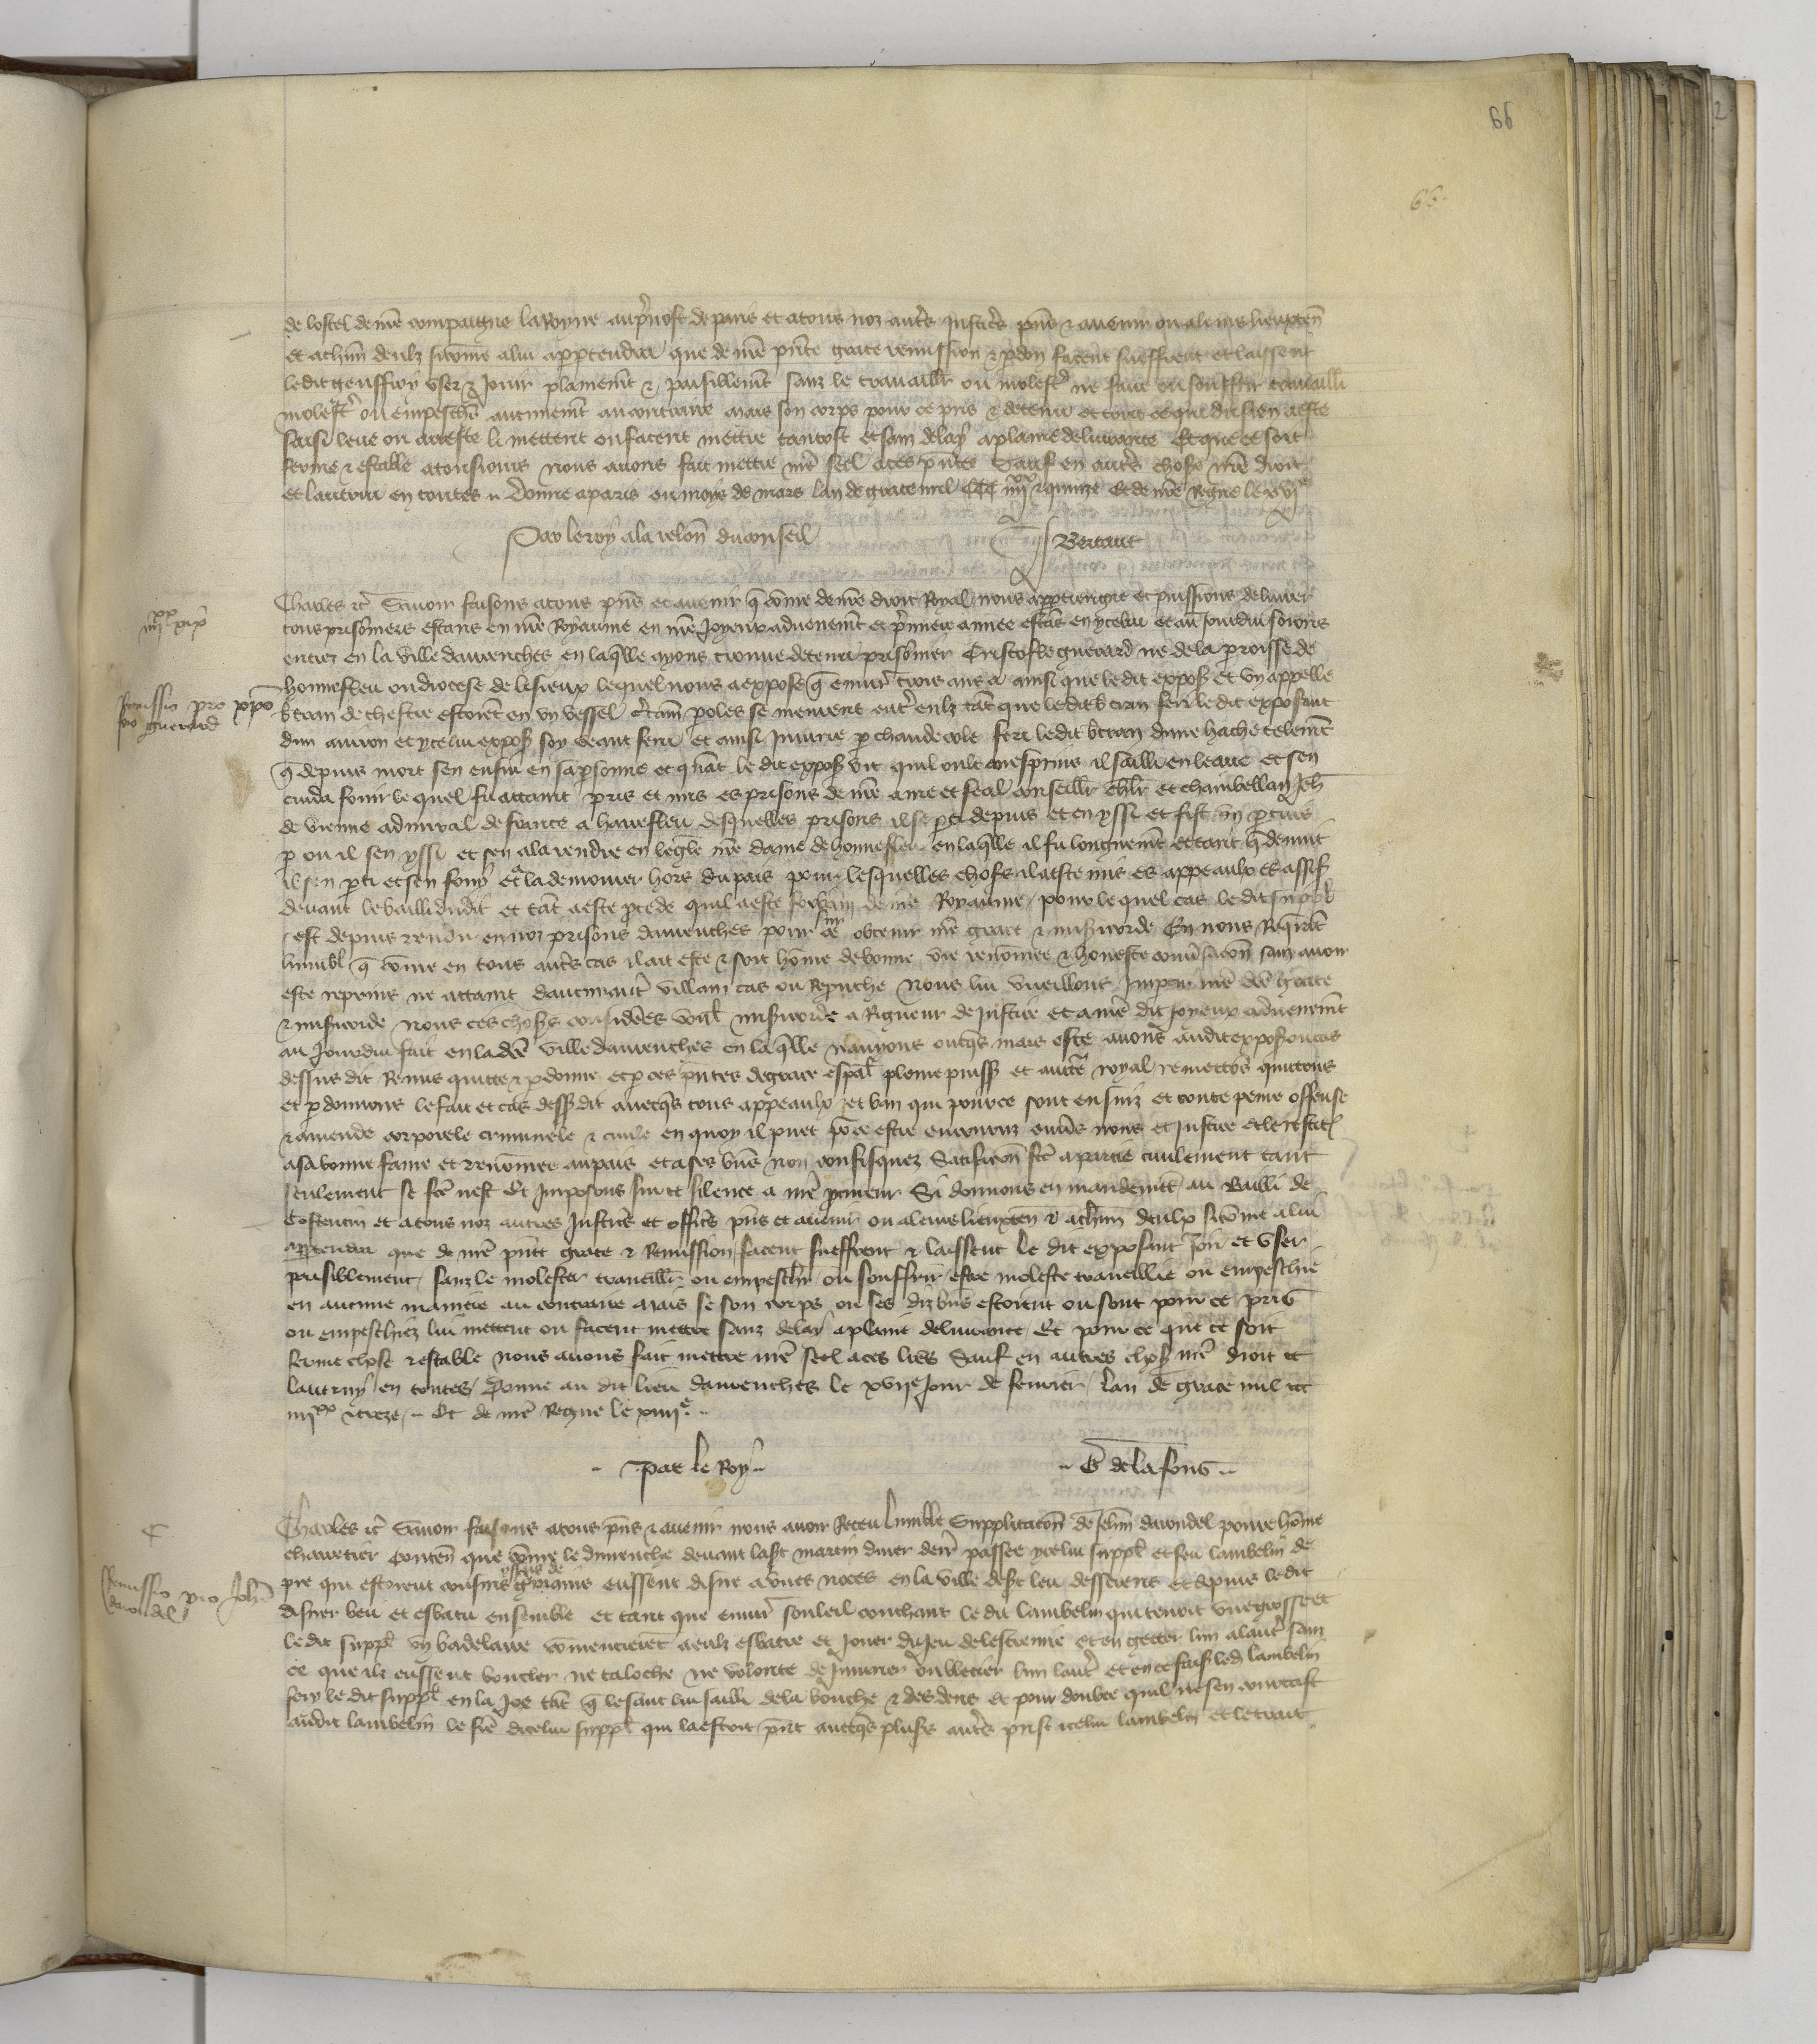 66
66.
de lostel de nre compaigne la Royne au prevost de paris et a tous noz autres justiciers pns & avenir ou a leurs lieuxten
et a chun deulz si come a lui appartendra que de nre pnte grace remission & pardon facent sueffrent et laissent
ledit geuffroy user & Joir plainemt & paisiblemt sanz le travaillr ou molester ne faire ou souffrir travaillr
molestr ou empeschr aucunemt au contraire mais son corps pour ce pris & detenu et tout ce qui du sien a este
saisi leve ou arreste li mettent ou facent mettre tantost et sanz delay a plaine delivrance Et que ce soit
ferme & estable a tousiours nous avons fait mettre nre seel a ces pntes Sauf en autres choses nre droit
et lautrui en toutes Donne a paris ou moys de mars lan de grace mil CCC iiiixx & quinze Et de nre Regne le xvie
Par le roy a la relon du conseil Bertaut
iiiixx xiii
Charles etc Savoir faisons a tous pns et avenir que come de nre droit Royal nous appartiengne et puissions delivrer
tous prisonniers estans en nre Royaume en nre Joyeux advenemt et premiere annee estans en ycelui et au Jourdui soions
entrez en la ville davrenches en laqlle ayons trouve detenu prisonnier Cristofle guerard ne de la paroisse de
Remissio pro xpo
foro guerard
honnefleu ou diocese de lisieux lequel nous a expose que environ trois ans a ainsi que ledit exposant et un appelle
btran de chestre estoiet en un vessel certain paroles se meurent entre eulz tat que ledit btran feri ledit exposant
dun aviron et ycelui exposant soy veant feru et ainsi Injurie par chaude cole feri ledit btran dune hache telemt
que depuis mort sen ensui en sa personne et quant ledit exposant vit quil oult mesprins il sailli en leaue et sen
cuida fouir lequel fu attaint pris et mis es prisons de nre ame et feal conseillr chlr et chambellan Jeh
de vienne admiral de france a harefleu desquelles prisons il se parti depuis et en yssi et fist un pertuis
par ou il sen yssi et sen ala rendre en legle nre dame de honnefleu en laqlle il fu longuemt et tant que devint
il sen parti et sen fouy et ala demourer hors du pais pour lesquelles choses il a este mis es appeaulx es assises
devant le bailli dudit et tat a este procede quil a este forbani de nre Royaume pour lequel cas ledit suppl
est depuis rendu en noz prisons davrenches pour sur ce obtenir nre grace & misericorde En nous Requerat
humbl que come en tous autres cas il ait este & soit home de bonne vie renomee & honeste conversacion sanz avoir
este reprins ne attaint daucun autre villain cas ou Reprouche Nous lui vueillons Impartir nre dce grace
& misericorde Nous ces choses considerees voul misericorde a Rigueur de Justice et a nre dit Joyeux advenemt
au Jourdui fait en la dce ville davrenches en laqlle naviyons oncqs mais este avons audit exposant ou cas
dessus dit Remis quitte & pardonne et par ces pntes de grace espal plaine puissance et aucte royal remettons quittons
et pardonnons le fait et cas dessusdit avecqs tous appeaulx et ban qui pource sont ensuiz et toute peine offense
& amende corporele criminele & civile en quoy il puet pource estre encouruz envers nous et Justice et le restit
a sa bonne fame et renomee au pais et a ses biens non confisquez Satisfacon fce a partie civilement tant
seulement se fce nest Et Imposons sur ce silence a nre procureur Si donnons en mandemt au Bailli de
Costentin et a tous noz autres Justiciers et officiers pns et avenir ou a leurs lieuxten & a chun deulx si come a lui
appartendra que de nre pnte grace & Remission facent sueffrent & laissent le dit exposant Joir et user
paisiblement sanz le molester traveillr ou empeschr ou souffrir estre moleste traveillie ou empeschie
en aucune maniere au contraire Mais se son corps ou ses diz biens estoient ou sont pour ce pris
ou empeschiez lui mettent ou facent mettre sanz delay a plaine delivrance Et pour ce que ce soit
ferme chose & estable Nous avons fait mettre nre seel a ces lres Sauf en autres choses nre droit et
lautruy en toutes Donne au dit lieu davrenches le xviie Jour de fevrier Lan de grace mil ccc
iiiixx & treze Et de nre Regne le xiiiie
Par le Roy G de la fons
Charles etc Savoir faisons a tous pns & avenir nous avoir Receu humble Supplicacion de Jehan darondel povre home
charretier conten que come le dimenche devant la st martin diver derr passee ycelui suppl et feu lambelin de
Remissio pro Johe
darondel
pre qui estoient cousins yssus de germains eussent disne a unes noces en la ville de st leu desserens et depuis ledit
disner beu et esbatu ensemble et tant que environ souleil couchant le dit lambelin qui tenoit une grosse et
le dit suppl un badelaire comencieret a eulz esbatre et Jouer du Jeu de lescremie et en getter lun a lautre sanz
ce que ilz eussent boucler ne taloche ne volonte de Injurier ou blecier lun lautre et en ce faisant led lambelin
feri le dit suppl en la Joe tat que le sanc lui sailli de la bouche & des dens et pour doubte quil ne sen courcast
audit lambelin le fre dicelui suppl qui la estoit pnt avecqs plusrs autres prist icelui lambelin et le trait